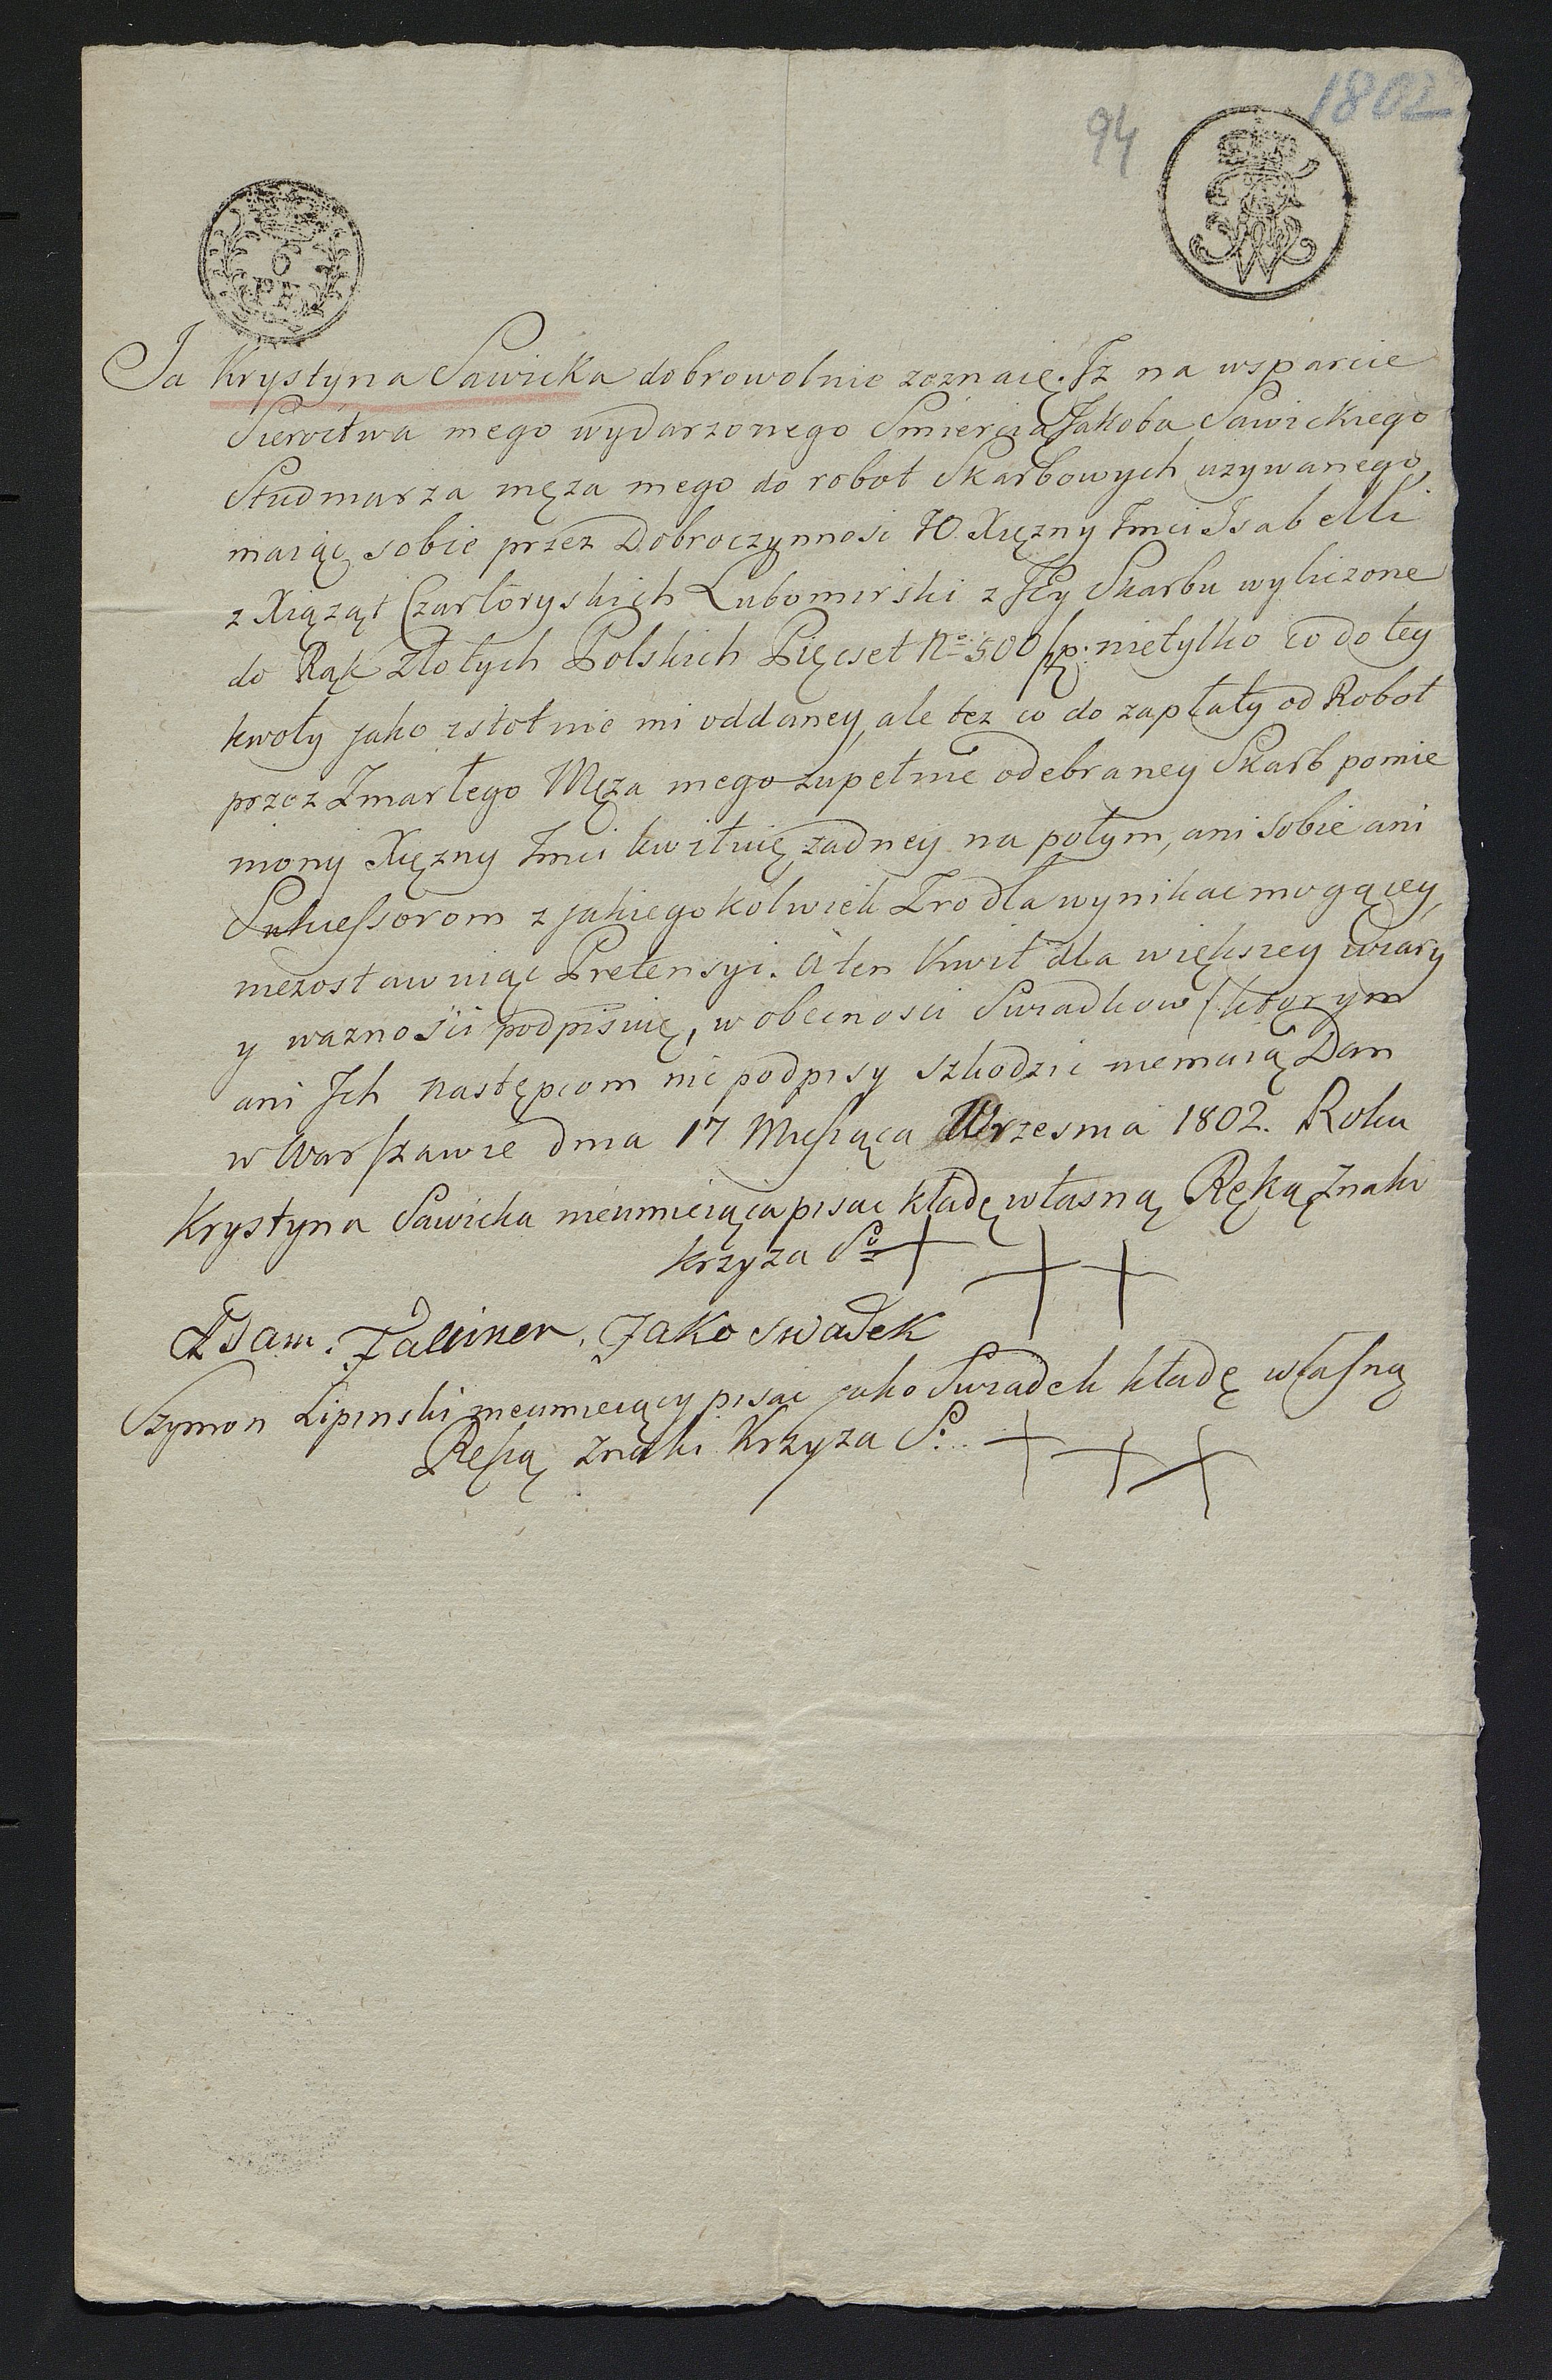 1802
94
6
PF
Ja Krystyna Sawicka dobrowolnie zeznaię. Iz na wsparcie
Sieroctwa mego wydarzonego Smiercią Jakoba Sawickiego
Studniarza męza mego do robot Skarbowych uzywanego,
maiąc sobie przez Dobroczynnosc JO. Xięzny Jmci Isabelli
z Xiąząt Czartoryskich Lubomirski z Jey Skarbu wyliczone
do Rąk Złotych Polskich Pięcset No 500 fp. nietylko co do tey
kwoty jako istotnie mi oddaney, ale tez co do zapłaty od Robot
przez Zmarłego Męza mego zupełnie odebraney Skarb pomie
niony Xięzny Jmci kwituię, zadney na potym, ani sobie ani
Sukcessorom z jakiegokolwiek Zrodła wynikac mogącey,
niezostawuiąc Pretensyi. A ten Kwit dla większey wiary
y waznosci podpisuię, w obecnosci Swiadkow / ktorym
ani Ich następcom nic podpisy szkodzic niemaią Dan
w Warszawie dnia 17 Miesiąca Wrzesnia 1802. Roku
Krystyna Sawicka nieumieiąca pisac kładę własną Ręką Znaki
krzyza So + + +
Adam. Jako swiadek
Szymon Lipinski nieumieiący pisac jako Swiadek kładę własną
Ręką Znaki Krzyza S. + + +